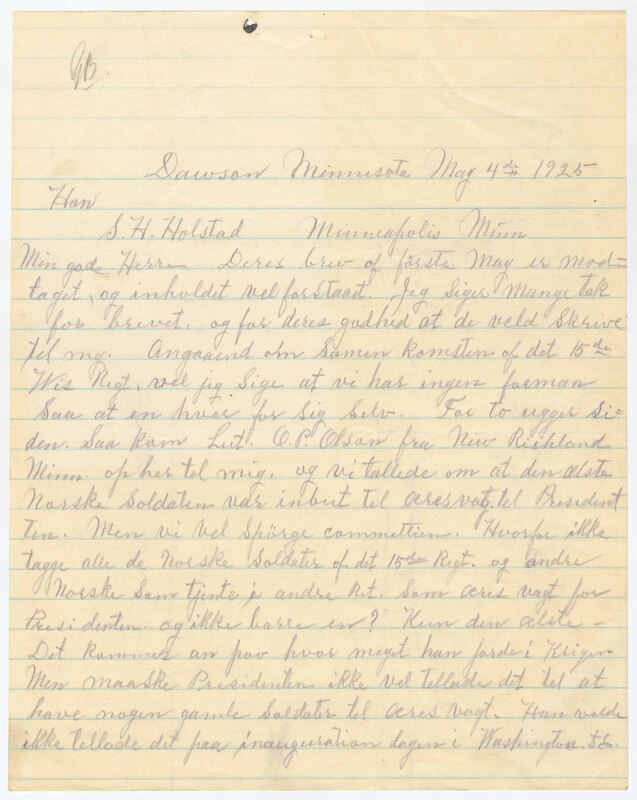 GB
Dawson Minnesota May 4de 1925
Han
S. H. Holstad Minneapolis Minn
Min gode Herre Deres brev of förste May er mod=
taget, og inholdet vel forstaat. Jeg Siger Mange tak
for brevet, og for deres godhed at de veld Skrive
tel mig. Angaaend om Samen komsten of det 15de
Wis Regt, vel jeg Sige at vi har ingen forman
Saa at en hver for Sig Selv. For to ugger Si=
den. Saa kom Lut. O. P. Olson fra New Richland
Minn. op her tel mig, og vi tallede om at den ælste
Norske Soldaten var inbut tel æres vagt tel President
ten. Men vi vel Spörge committien. Hvorfor ikke
tagge alle de Norske Soldater of det 15de Regt. og andre
Norske Som tjente i andre Ret. Som æres vagt for
Presidenten og ikke barre en? Kun den ælste -
Det kommer an paa hvor meget han jorde i Krigen
Men maaske Presidenten ikke vel tellade det tel at
have nogen gamle Soldater tel æres vagt. Han velde
ikke tellade det paa inauguration dagen i Washington.